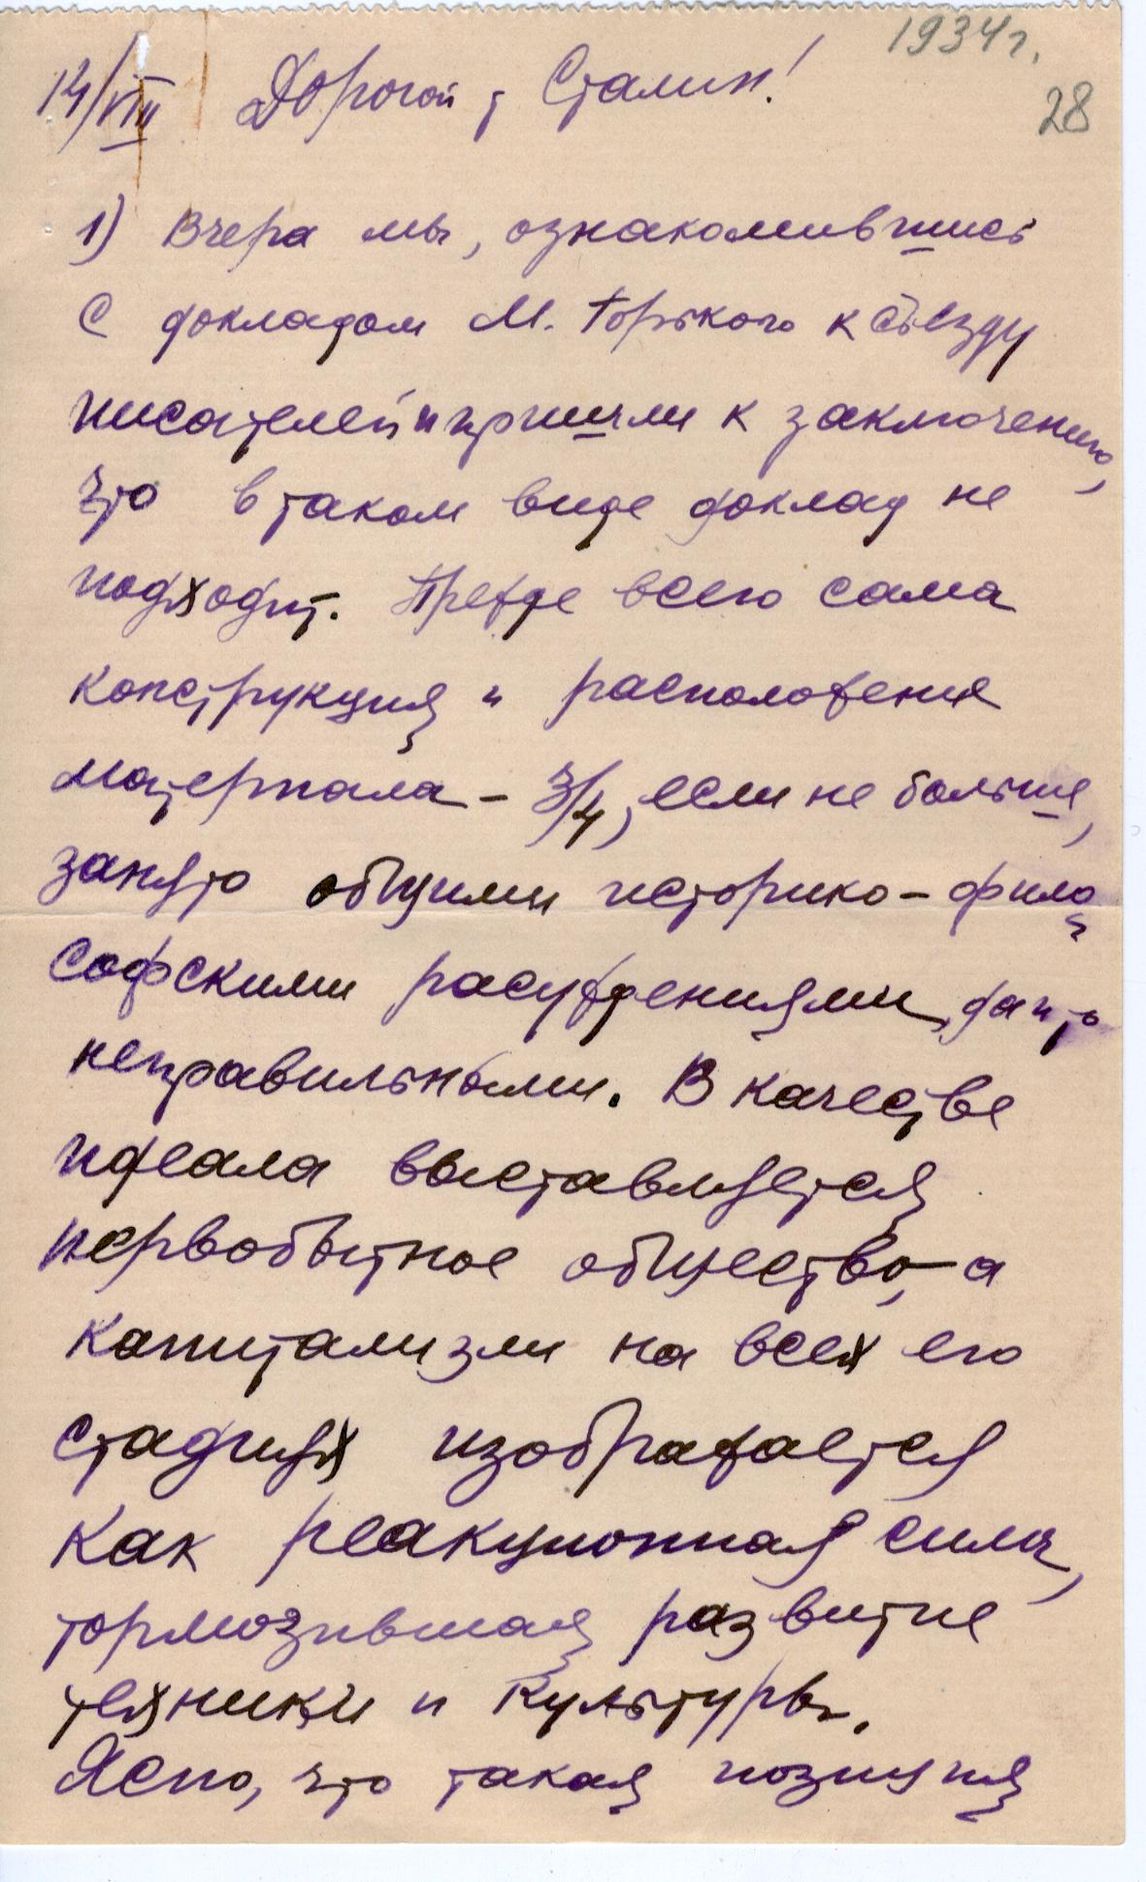 1934 г.
28
14/VIII Дорогой т Сталин!
1) Вчера мы, ознакомившись
с докладом М. Горького к съезду
писателей пришли к заключению,
что в таком виде доклад не
подходит. Прежде всего сама
конструкция и расположение
материала – 3/4, если не больше,
занято общими историко-фило
софскими рассуждениями, да и то
неправильными. В качестве
идеала выставляется
первобытное общество, а
капитализм на всех его
стадиях изображается
как реакционная сила,
тормозившая развитие
техники и культуры.
Ясно, что такая позиция